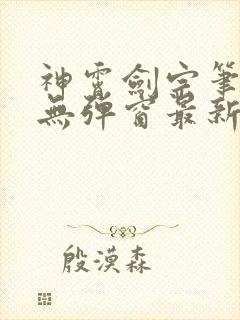 神霄劍宗筆
無彈窗最新
殷漠森